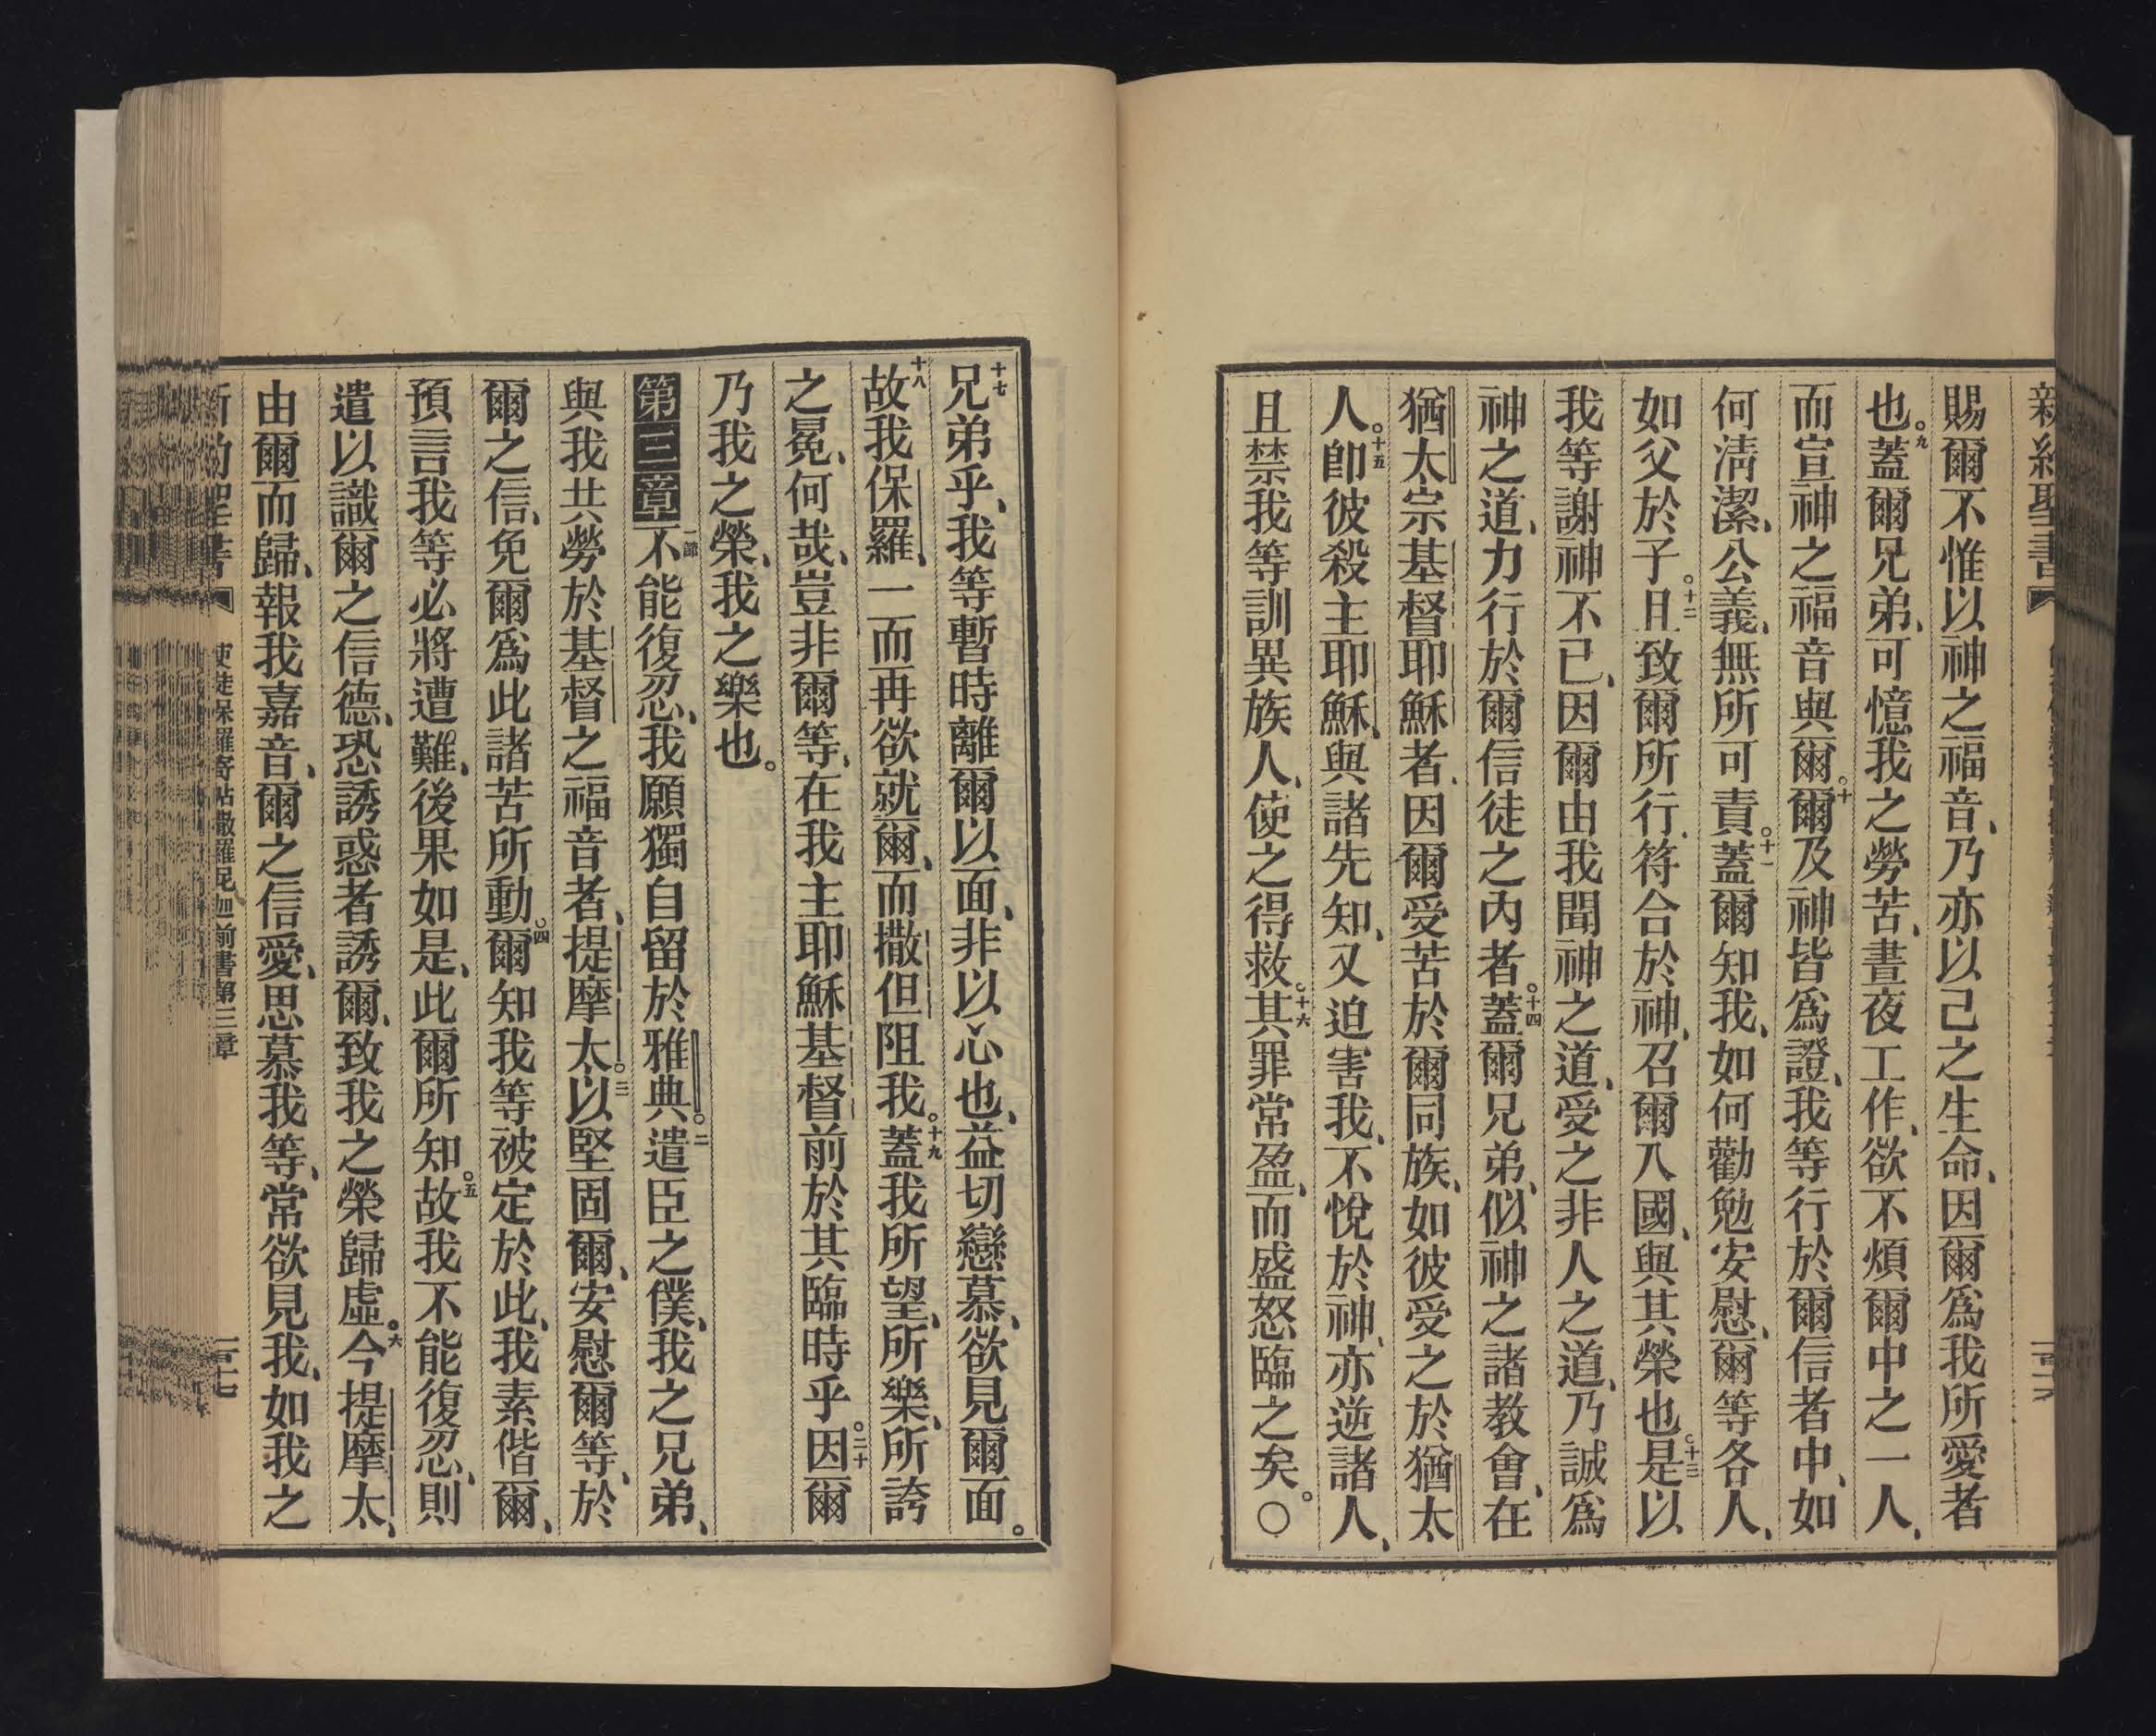 新約聖書
賜爾不惟以神之福音、乃亦以己之生命、因爾爲我所愛者
也。九蓋爾兄弟、可憶我之勞苦、晝夜工作、欲不煩爾中之一人、
而宣神之福音與爾。十爾及神皆爲證、我等行於爾信者中、如
何清潔、公義、無所可責。十一蓋爾知我、如何勸勉安慰、爾等各人、
如父於子。十二且致爾所行、符合於神、召爾入國、與其榮也。十三是以
我等謝神不已、因爾由我聞神之道、受之非人之道、乃誠爲
神之道、力行於爾信徒之內者。十四蓋爾兄弟、似神之諸教會、在
猶太宗基督耶穌者、因爾受苦於爾同族、如彼受之於猶太
人。十五卽彼殺主耶穌、與諸先知、又迫害我、不悅於神、亦逆諸人、
且禁我等訓異族人、使之得救。十六其罪常盈、而盛怒臨之矣。〇
十七兄弟乎、我等暫時離爾以面、非以心也、益切戀慕、欲見爾面。
十八故我保羅、一而再欲就爾、而撒但阻我。十九蓋我所望、所樂、所誇
之冕、何哉、豈非爾等、在我主耶穌基督前於其臨時乎。二十因爾
乃我之榮、我之樂也。
第三章 一節不能復忍、我願獨自留於雅典。二遣臣之僕、我之兄弟、
與我共勞於基督之福音者、提摩太。三以堅固爾、安慰爾等、於
爾之信、免爾爲此諸苦所動。四爾知我等被定於此、我素偕爾、
預言我等必將遭難、後果如是、此爾所知。五故我不能復忍、則
遣以識爾之信德、恐誘惑者誘爾、致我之榮歸虛。六今提摩太、
由爾而歸、報我嘉音、爾之信愛、思慕我等、常欲見我、如我之
新約聖書 使徒保羅寄帖撒羅尼迦前書第三章 一百七